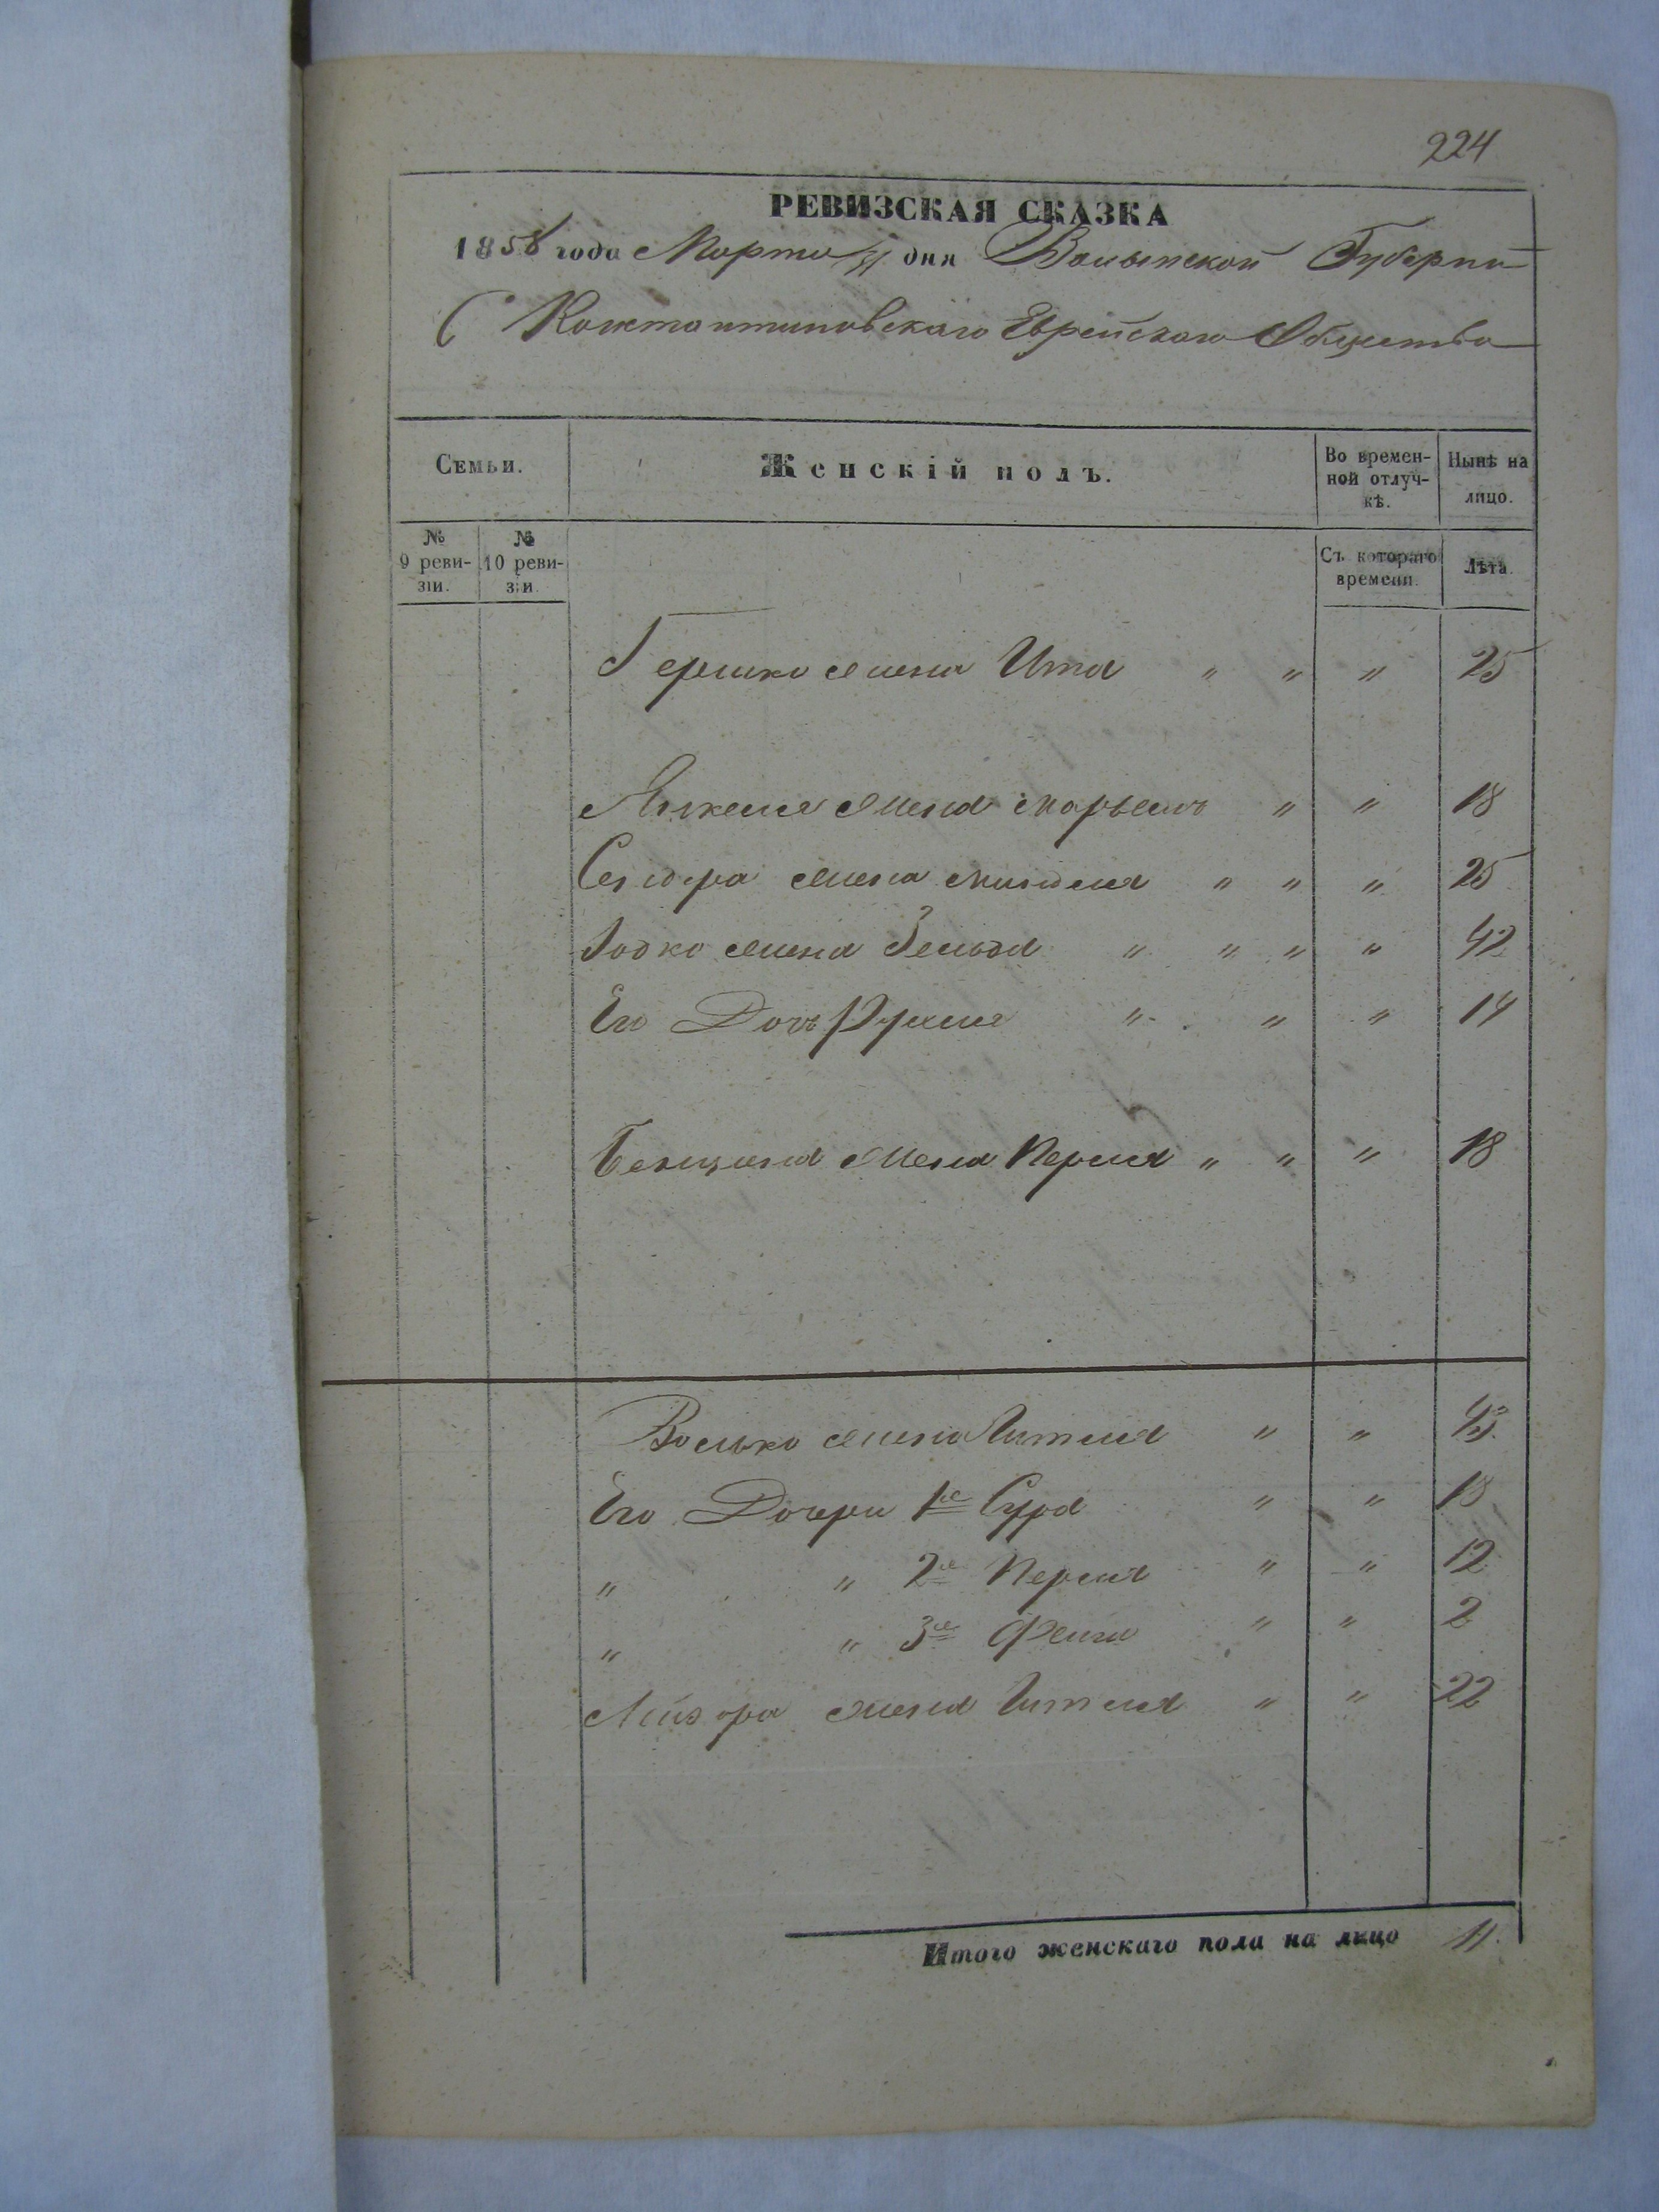 224
РЕВИЗСКАЯ СКАЗКА
1858 года Марта дня Волынской Губерни
Константиновскаго Еврейскаго Общества
Семьи.
Женскій полъ.
Во времен-
ной отлуч-
кѣ.
Нынѣ на
лицо.
№
9 реви-
зіи.
№
10 реви-
зіи.
Съ котораго
времени.
Лѣта.
Гершко жена Ита " " " 25
Янкеля жена Марьемъ " " 18
Сендера жена Миндля " " " 25
Іодко жена Зельда " " " " 42
Его Дочь Рухля " " " 14
Бенциона жена Перля " " " 18
Волько жена Гитля " " 43
Его Дочери 1я Сура " " 18
" " 2я Перля " " 12
" " 3я Фейга " " 2
Лейзора жена Гитля " " 22
Итого женскаго пола на лицо 11.